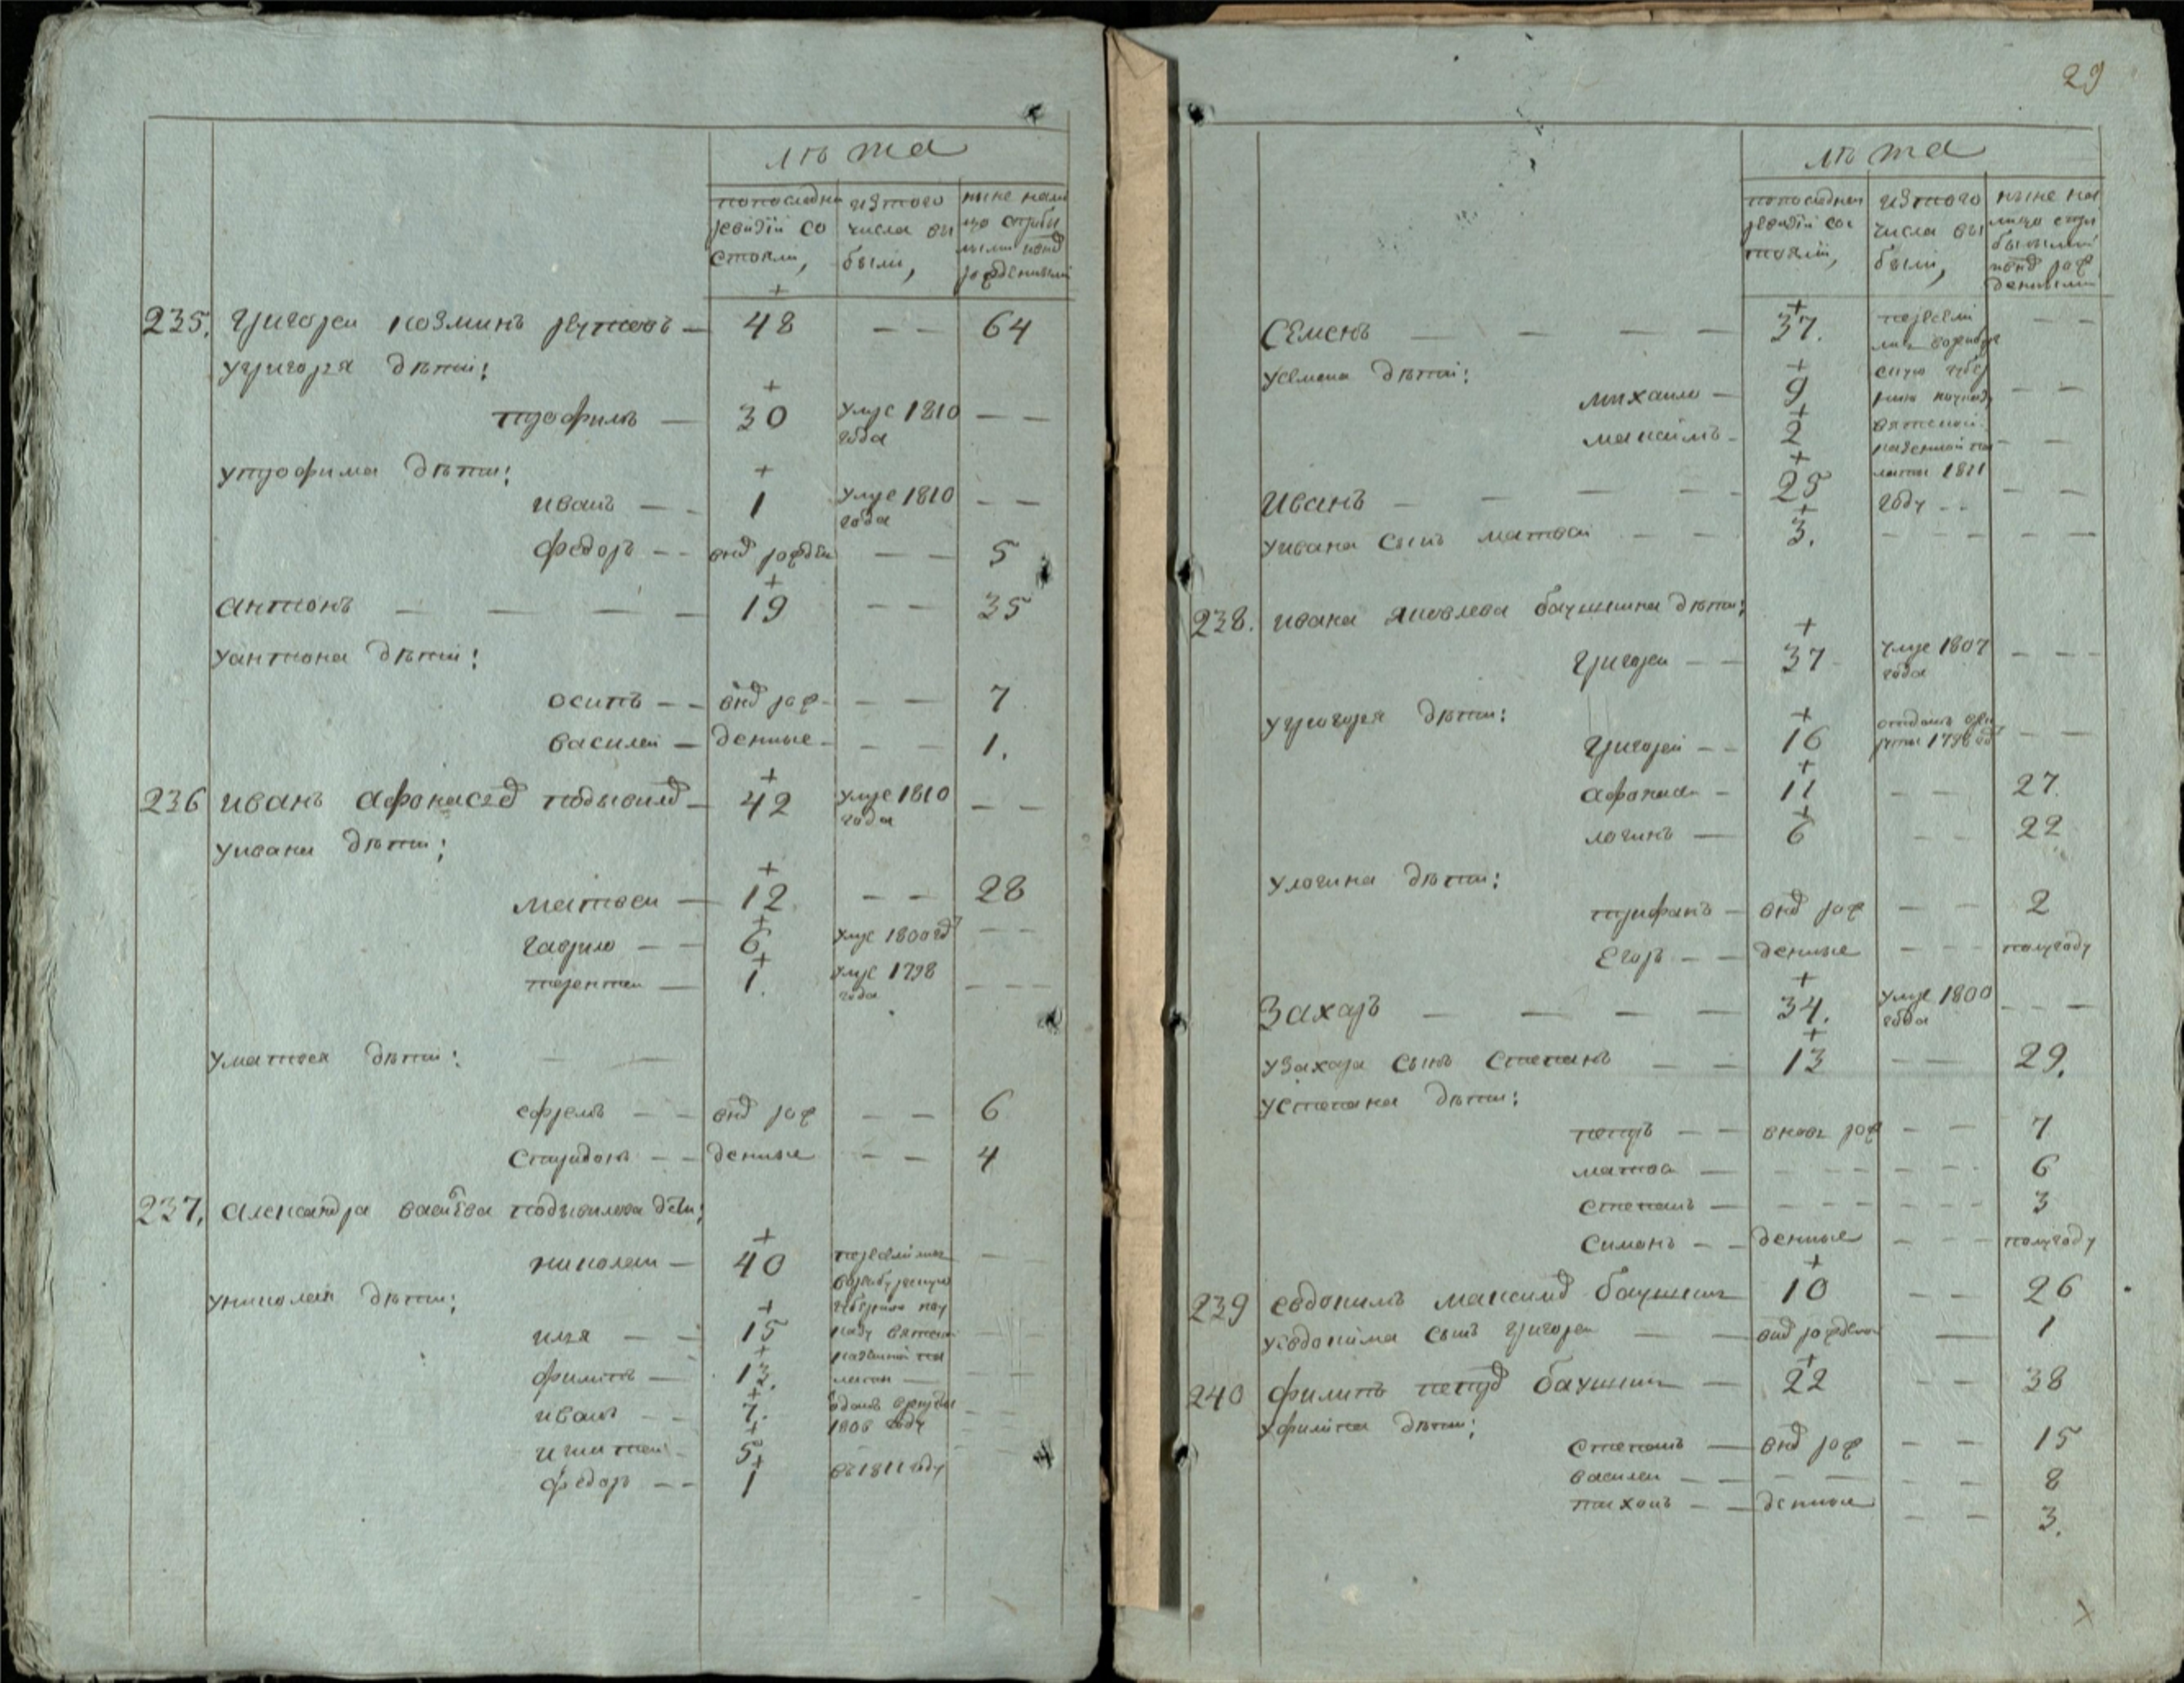 лѣта
попоследней ревизїи состояли,
изтого числа выбыли,
ныне налицо сприбылыми ивновь рожденными
235. Григореи Козминъ — 48 — — 64
Угригорья дѣти:
трофимъ — 30 умре 1810 года — —
Утрофима дѣти:
иванъ — — 1 умре 1810 года — —
федоръ — — внов рожден — — 5
антонъ — — — — 19 — — 35
Уантона дѣти:
осипъ — — внов рож — — 7
василеи — денные — — 1.
236 иванъ афонасьев — 42 умре 1810 года — —
Уивана дѣти:
матвеи — 12. — — 28
гаврило — — 6 умре 1800 год — —
терентеи — 1. умре 1798 года — — —
Уматвея дѣти: — —
ефремъ — — внов рож — — 6
спиридонъ — — денные — — 4
237. александра дѣти:
николаи — 40 перевелися —
воренбурскую
Униколая дѣти:
губернию по
илья — — 15 указу вятской — —
филипъ — 13. казенной палаты — — —
иванъ — — 7. отданъ врекруты — —
1806 году
игнатеи — 5
федоръ — — 1 въ 1811 году
29
лѣта
попоследнеи ревизїи состояли,
изтого числа выбыли,
ныне налицо сприбылыми ивновь рожденными
Семенъ — — — — 37. перевели — —
лись воренбур
Усемена дѣти: скую губер
михаило — 9 нию поуказу — —
максимъ — 2 вятской — —
казенной па
Иванъ — — — — — 25 латы 1811 — —
году — —
Уивана сынъ матвеи — — 3. — — — — —
238. ивана яковлева баушкина дѣти:
григореи — — 37 умре 1807 года — — —
Угригорья дѣти:
григореи — — 16 отданъ врекруты 1798 год — —
афонасеи — 11 — — 27.
логинъ — 6 — — 22
Улогина дѣти:
трифанъ — внов рож — — 2
Егоръ — — денные — — — полугоду
Захаръ — — — — 34. умре 1800 года — — —
Узахара сынъ Степанъ — — 13 — — 29.
Устепана дѣти:
петръ — — вновь рож — — 7
матвеи — — — — — — — 6
степанъ — — — — — — — 3
симонъ — — денные — — — полугоду
239 евдокимъ максимов баушкин 10 — — 26
Уевдокима сынъ григореи — — внов рожден — 1
240 филипъ петров баушкин — 22 — — 38
Уфилипа дѣти:
степанъ — внов рож — — 15
василеи — — — — — — 8
тихонъ — — денные — — 3.